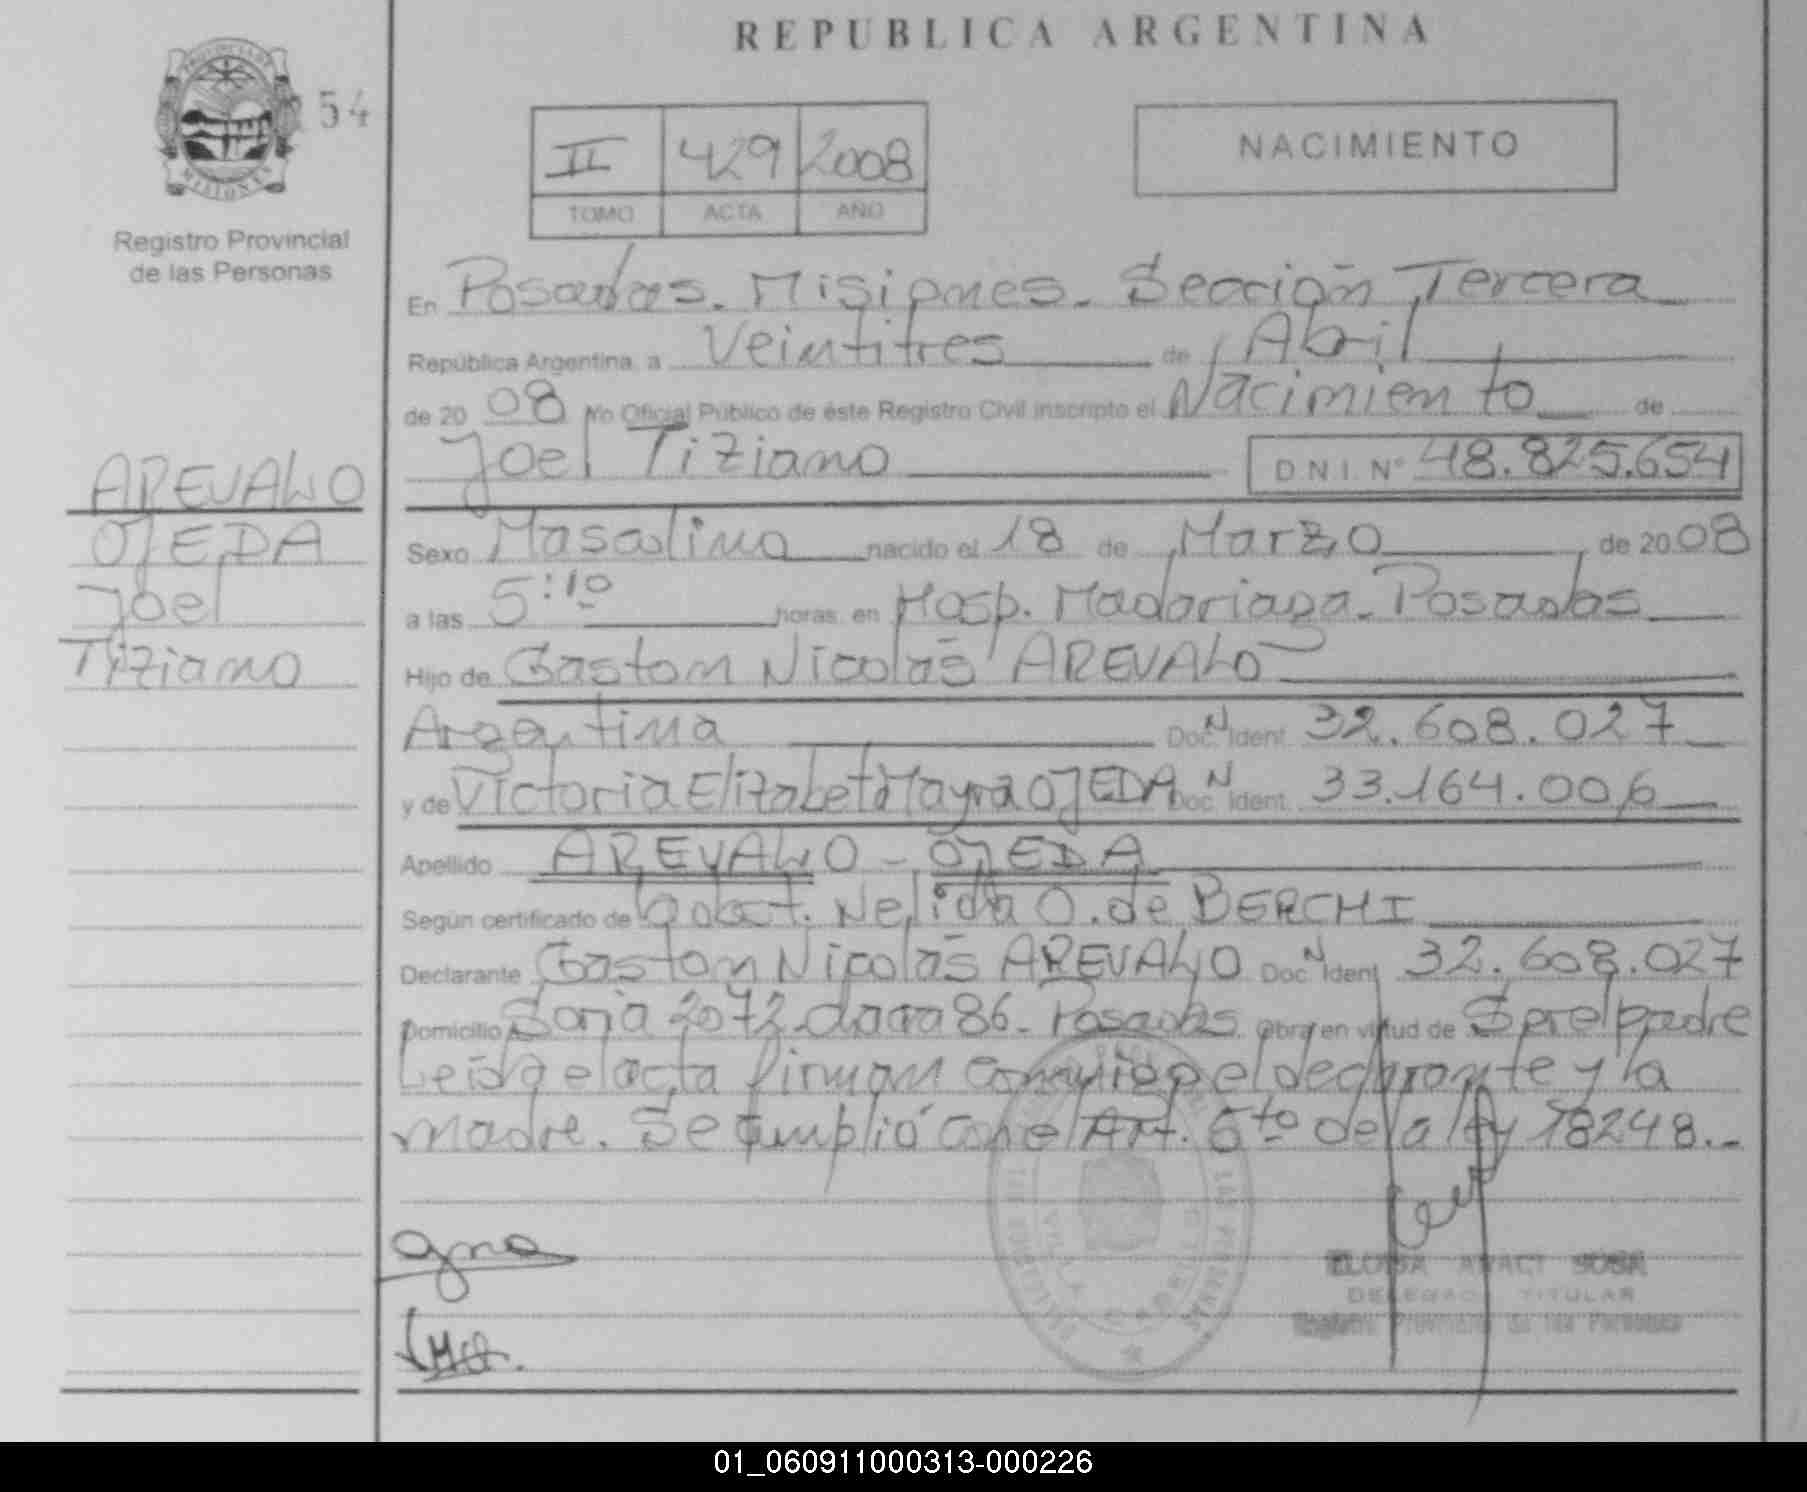 REPUBLICA ARGENTINA
PROVINCIA DE
MISIONES
54
Registro Provincial
de las Personas
II 429 2008
TOMO ACTA AÑO
NACIMIENTO
En Posadas. Misiones. Sección Tercera
República Argentina, a Veintitres de Abril
de 2008 Yo Oficial Público de éste Registro Civil inscripto el Nacimiento de
Joel Tiziano D.N.I. Nº 48.825.654
AREVALO
OJEDA
Joel
Tiziano
Sexo Masculino nacido el 18 de Marzo de 2008
a las 5:10 horas en Hosp. Madariaga. Posadas
Hijo de Gaston Nicolás AREVALO
Argentina Doc. N Ident. 32.608.027
y de Victoria Elizabeth Mayra OJEDA Doc. N Ident. 33.164.006
Apellido AREVALO - OJEDA
Según certificado de Obst. Nelida O. de BERCHI
Declarante Gaston Nicolás AREVALO Doc. N Ident. 32.608.027
Domicilio Soria 2072 chacra 86. Posadas. Obra en virtud de Ser el padre
Leída el acta firman conmigo el declarante y la
madre. Se cumplió con el Art. 5to de la ley 18248.-
SOSA
TITULAR
Registro Provincial de las Personas
01_060911000313-000226